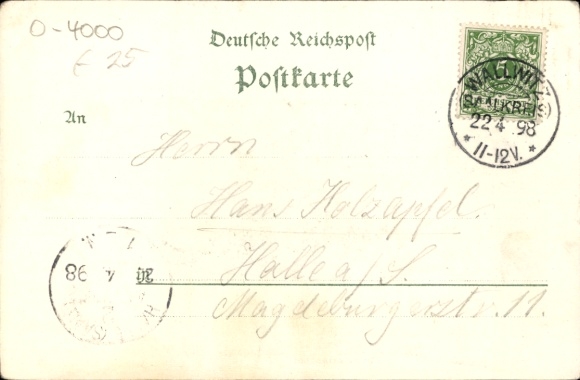 O-4000
£ 25
Deutsche Reichspost
Postkarte
An
Herrn
Hans Holzapfel.
Halle a/S.
Magdeburgerstr. 11.
5
WALLWITZ
(SAALKREIS)
22 4 98
* 11-12V. *
98